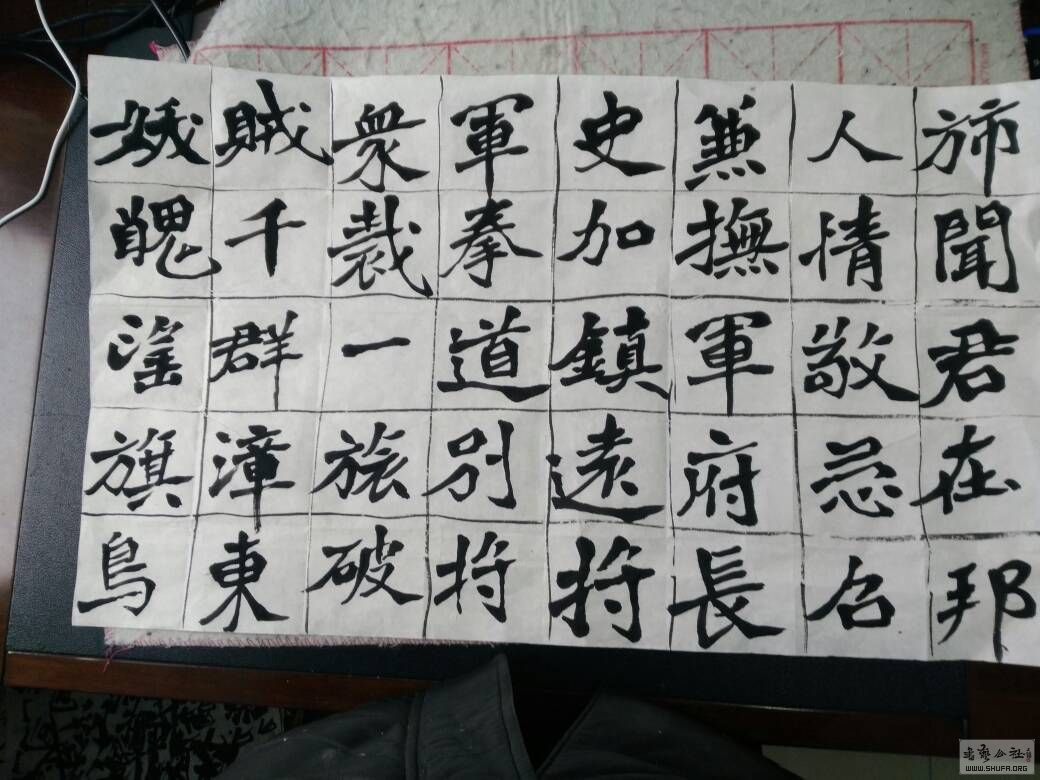 聞君在邦
人情敬召
兼撫軍府長
史加鎮遠將
軍拳道別將
衆裁一旅破
賊千群漳東
蛾醜滏旗鳥
书艺公社
WWW.SHUFA.ORG